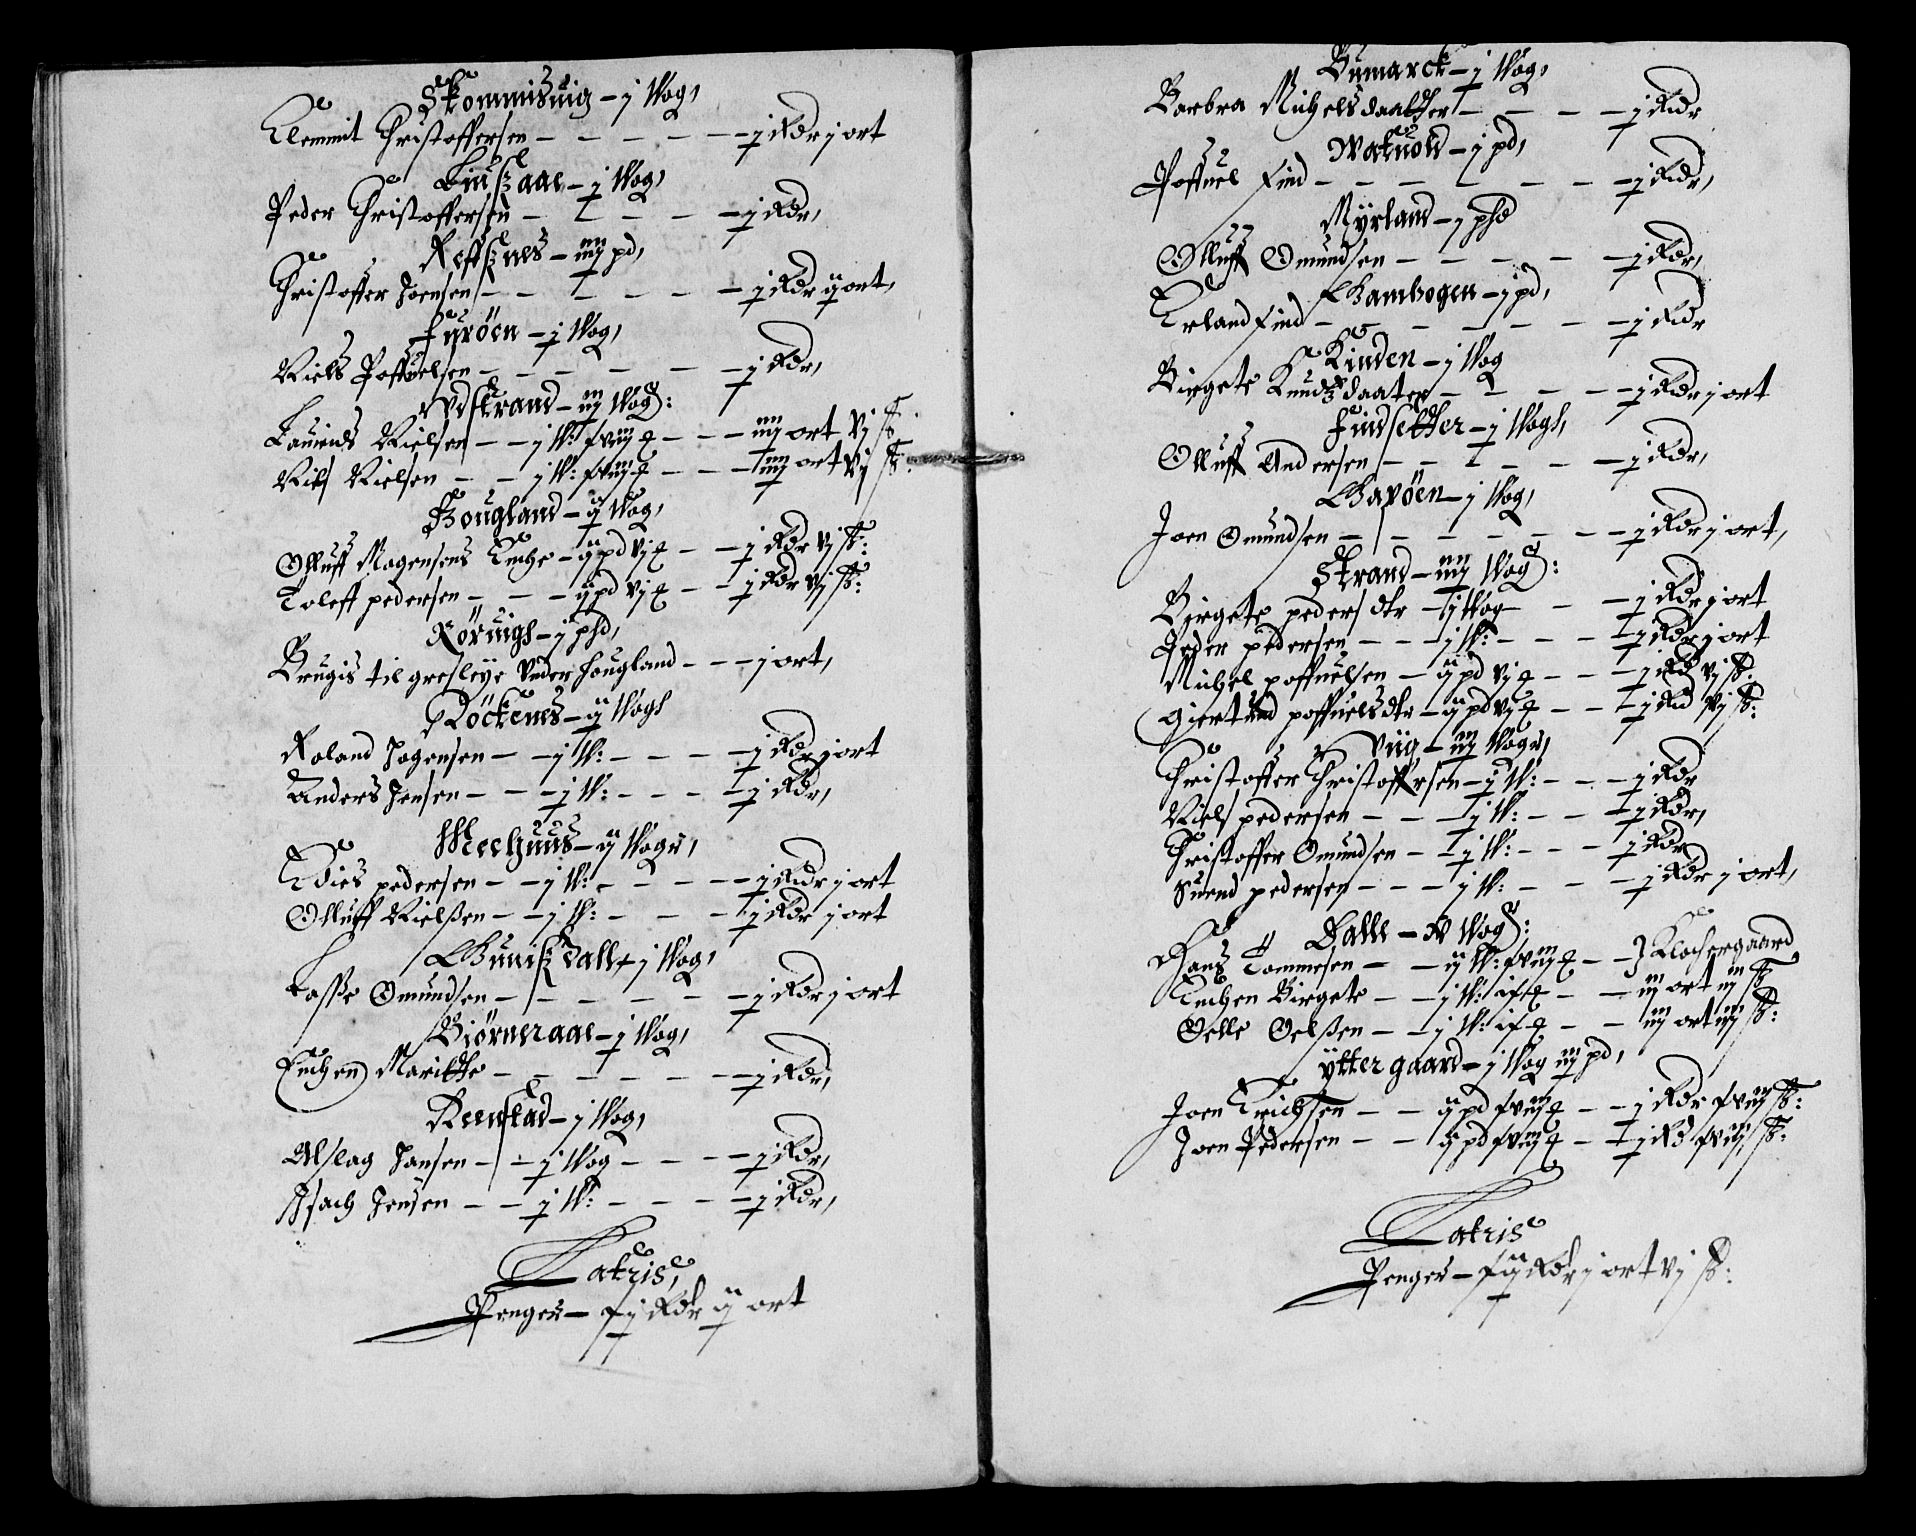 Skommisuig – j Wog,
Clemmit Christoffersen – – – – – – j Rdr j ort
Liusz aae – j Wog,
Peder Christoffersen – – – – – j Rdr,
Reffsznes – iiij pd,
Christoffer Joensen – – – – – – j Rdr ij ort,
Fyröen – j Wog,
Niels Poffuelsen – – – – – – j Rdr,
Vdstrand – iij Wog:
Laurids Nielsen – – j W: xviij – – – iiij ort vj s
Niels Nielsen – – j W: xviij – – – iiij ort vj s:
Hougland – ij Wog,
Olluff Mogensens Enche – ij pd vj – – j Rdr vj s:
Toleff pedersen – – – ij pd vj – – j Rdr vj s:
Röruigh – j phd,
Brugis til gresleye Vnder Hougland – – – j ort,
Röckenes – ij Wogh
Roland Jogensen – – j W: – – – – j Rdr j ort
Anders Jensen – – – j W: – – – – j Rdr,
Meehuus – ij Wogu,
pedersen – – j W: – – – – j Rdr j ort
Olluff Nielszen – – j W: – – – j Rdr j ort
Gunisz dall – j Wog,
Lasse Omundsen – – – – – – j Rdr j ort
Biörneraae – j Wog,
Enchen Maritthe – – – – – – – j Rdr,
Reenstad – j Wog,
Asslag Jansen – – j Wog – – – – j Rdr,
Isach Jensen – – – j W: – – – – j Rdr,
Lateris,
Penger – xxj Rdr ij ort
Bumarck – j Wog,
Barbra Michelsdaatther – – – – j Rdr
Watuold – j pd,
Poffuel Find – – – – – – – j Rdr,
Myrland – j phd
Olluff Omundsen – – – – – – j Rdr,
Gambogen – j pd,
Erland Find – – – – – – – j Rdr
Kinden – j Wog
Birgete Knudzdaater – – – – – j Rdr j ort
Findsetther – j Wogh,
Olluff Andersen – – – – – – j Rdr,
Gavöen – j Wog,
Joen Omundsen – – – – – – – j Rdr j ort,
Strand – iiij Wog:
Birgete peders dtr – j Wog – – – j Rdr j ort
Peder pedersen – – – j W: – – – – j Rdr j ort
Michel poffuelsen – ij pd vj – – – j Rd vj s.
Giertrud poffuels dtr – ij pd vj – – j Rd vj s:
Viig – iiij Wogu,
Christoffer Christoffersen – j W: – – – j Rdr
Niels pedersen – – – j W: – – – j Rdr,
Christoffer Omundsen – – j W: – – – j Rdr
Suend pedersen – – – – j W: – – – j Rdr j ort,
Dalle – v Wog:
Hans Tommesen – – ij W: xviij – – } Klostergaard
Enchen Birgete – – j W: – – iij ort iij s
Oelle Oelszen – – j W: – – iij ort iij s:
ytter gaard – j Wog iiij pd,
Joen Erichsen – – ij pd xviij – – j Rdr xviij s:
Joen Pedersen – – ij pd xviij – – j Rd xviij s:
Lateris
Penger – xxij Rdr j ort vj s: